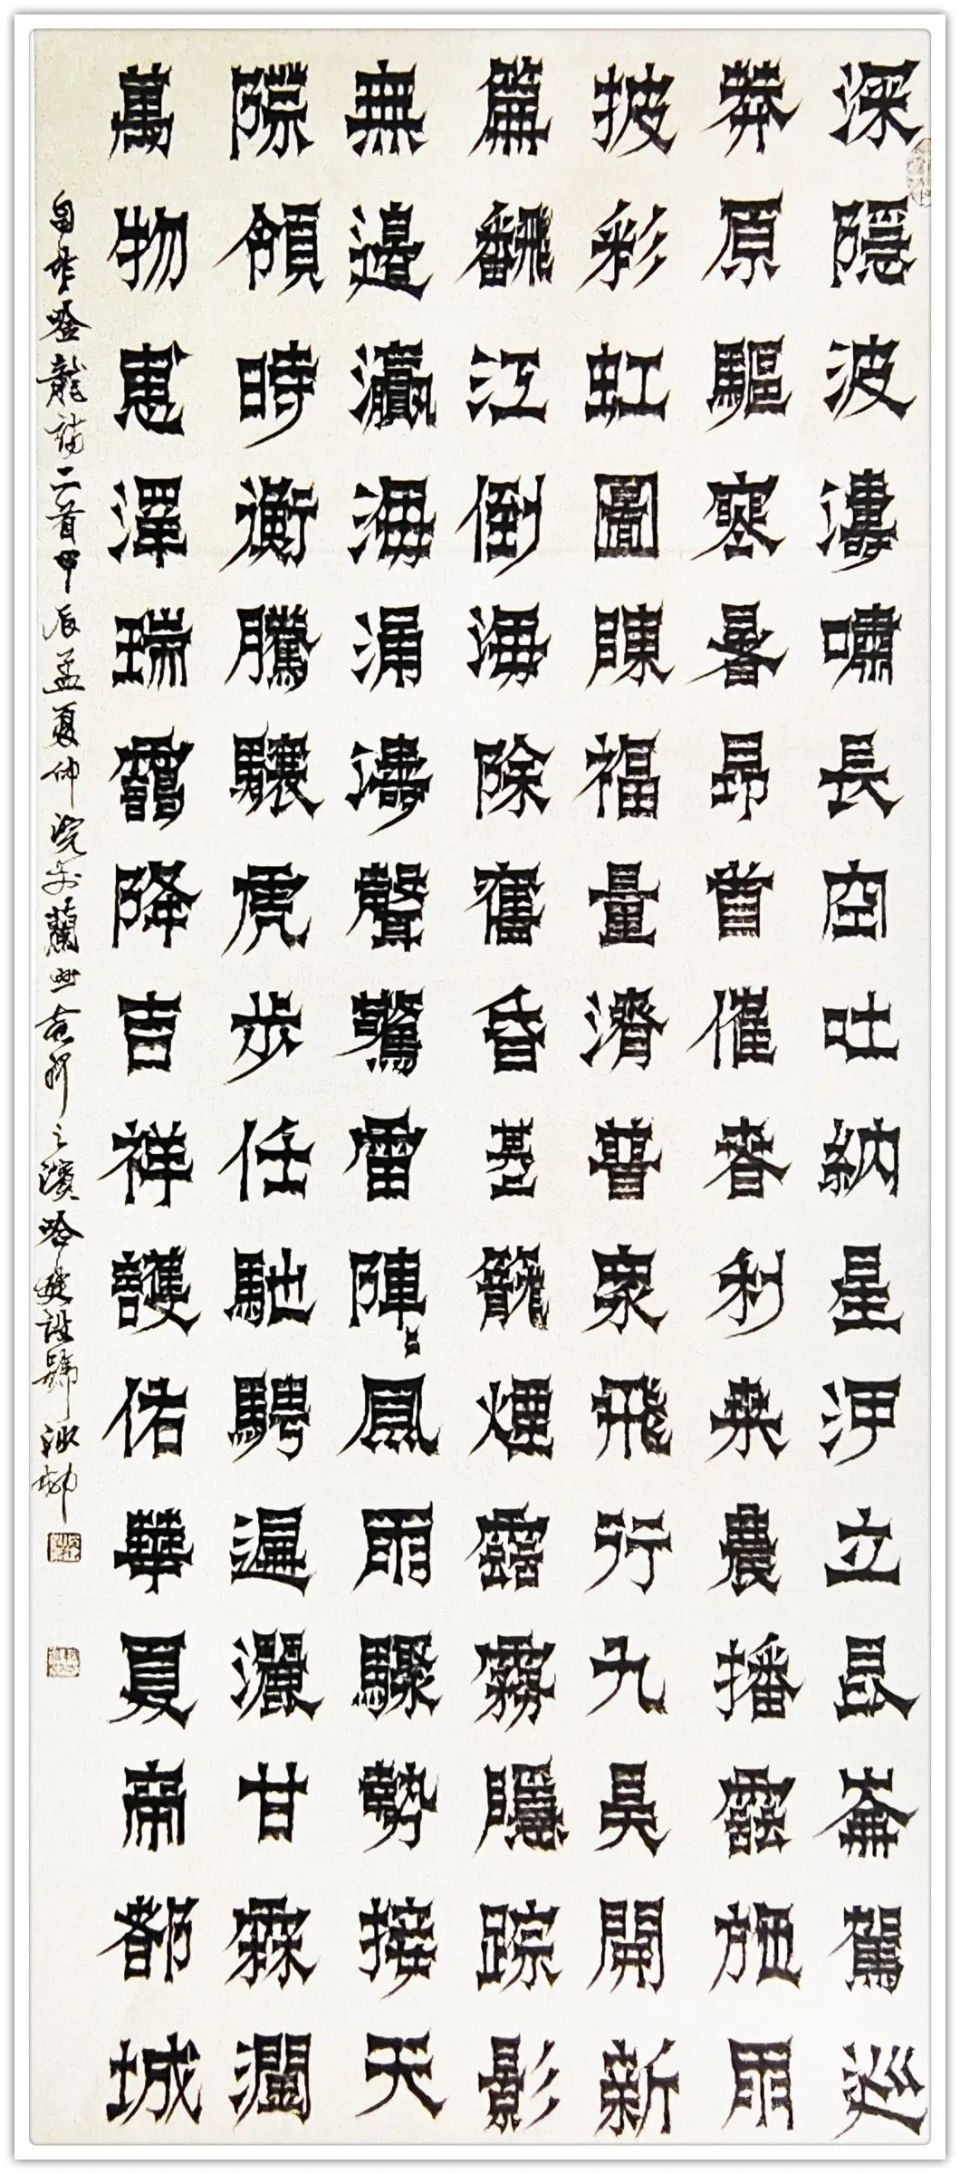 深隱波濤嘯長空吐納星河立昆崙駕巡
莽原驅寒暑昂首催春利桑農播靈施雨
披彩虹圖陳福量濟普眾飛行九昊開新
篇翻江倒海除舊昏籠煙露霧隱踪影
無邊瀛海涌濤聲驚雷陣〻風雨驟勢接天
際領時衡騰驤虎步任馳騁遍灑甘霖潤
萬物惠澤瑞靄降吉祥護佑華夏帝都城
自作龍詩二首甲辰孟夏仲浣於蘭州黃河之濱哈建設號